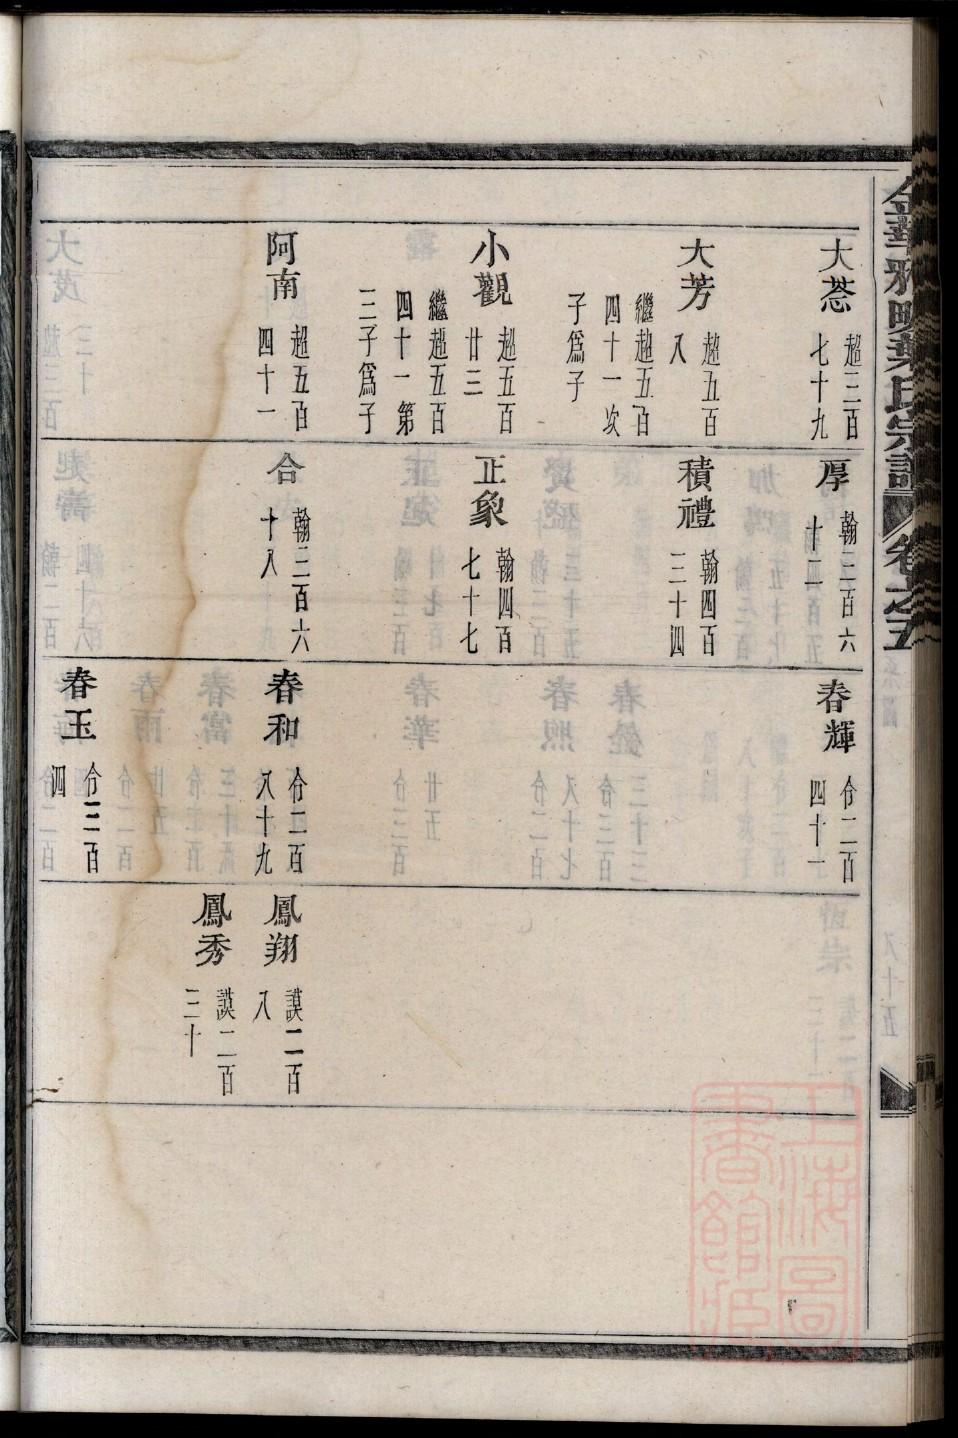 金華雅畈葉氏宗譜
卷之五
大荵
超三百
七十九
大芳
超五百
八
繼超五百
四十一次
子爲子
小觀
超五百
廿三
繼超五百
四十一第
三子爲子
阿南
超五百
四十一
厚
翰三百六
十二
積禮
翰四百
三十四
正象
翰四百
七十七
合
翰三百六
十八
春輝
侖二百
四十一
春和
侖二百
八十九
春玉
侖三百
四
鳳翔
謨二百
八
鳳秀
謨二百
三十
上海圖
書館藏